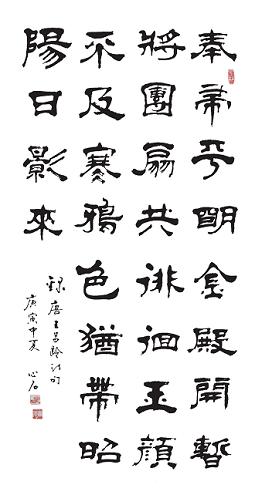 奉帚平明金殿開暫
將團扇共徘徊玉顏
不及寒鴉色猶帶昭
陽日影來
錄唐王昌齡詩句
庚寅中夏 心石